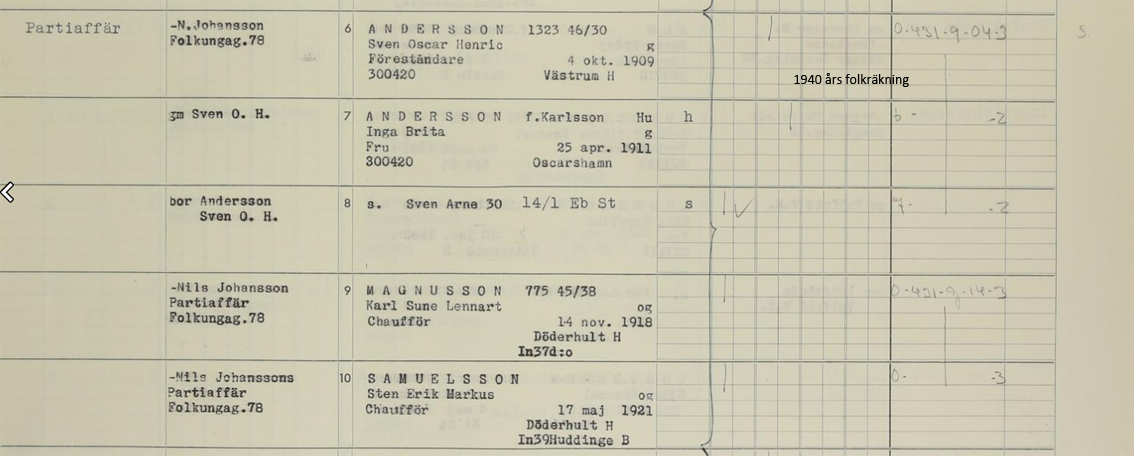 Partiaffär
-N.Johansson
Folkungag.78
6 ANDERSSON 1323 46/30
Sven Oscar Henric g
Föreståndare 4 okt. 1909
300420 Västrum H
0-431-9-04-3
5.
1940 års folkräkning
gm Sven O. H.
7 ANDERSSON f.Karlsson Hu h
Inga Brita g
Fru 25 apr. 1911
300420 Oscarshamn
6 - -2
bor Andersson
Sven O. H.
8 s. Sven Arne 30 14/1 Eb St s
7- -2
-Nils Johansson
Partiaffär
Folkungag.78
9 MAGNUSSON 775 45/38
Karl Sune Lennart og
Chaufför 14 nov. 1918
Döderhult H
In37d:o
0-431-9-14-3
-Nils Johanssons
Partiaffär
Folkungag.78
10 SAMUELSSON
Sten Erik Markus og
Chaufför 17 maj 1921
Döderhult H
In39Huddinge B
0- -3